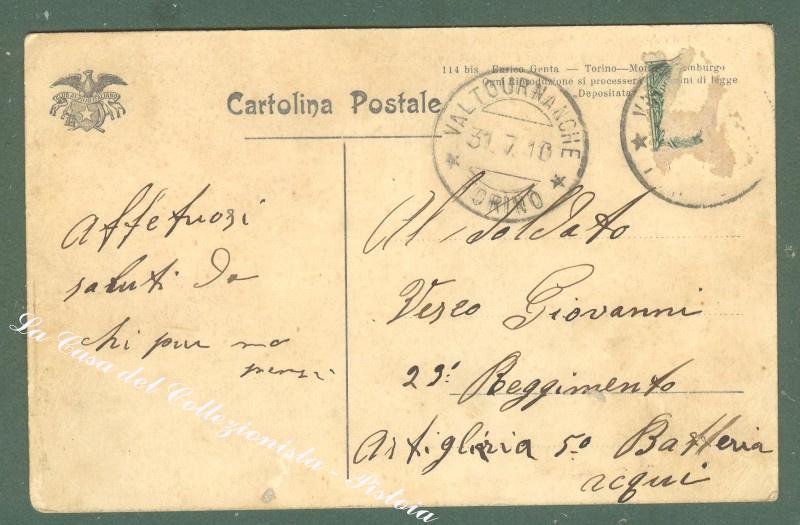 114 bis Enrico Genta — Torino—
Ogni Riproduzione si processerà di legge
Depositata
CLUB ALPINO ITALIANO
Cartolina Postale
VALTOURNANCHE
31.7.10
TORINO
Affetuosi
saluti da
chi pur
Al soldato
Verso Giovanni
23: Reggimento
Artigliria 5º Batteria
acqui
La Casa del Collezionista - Pistoia